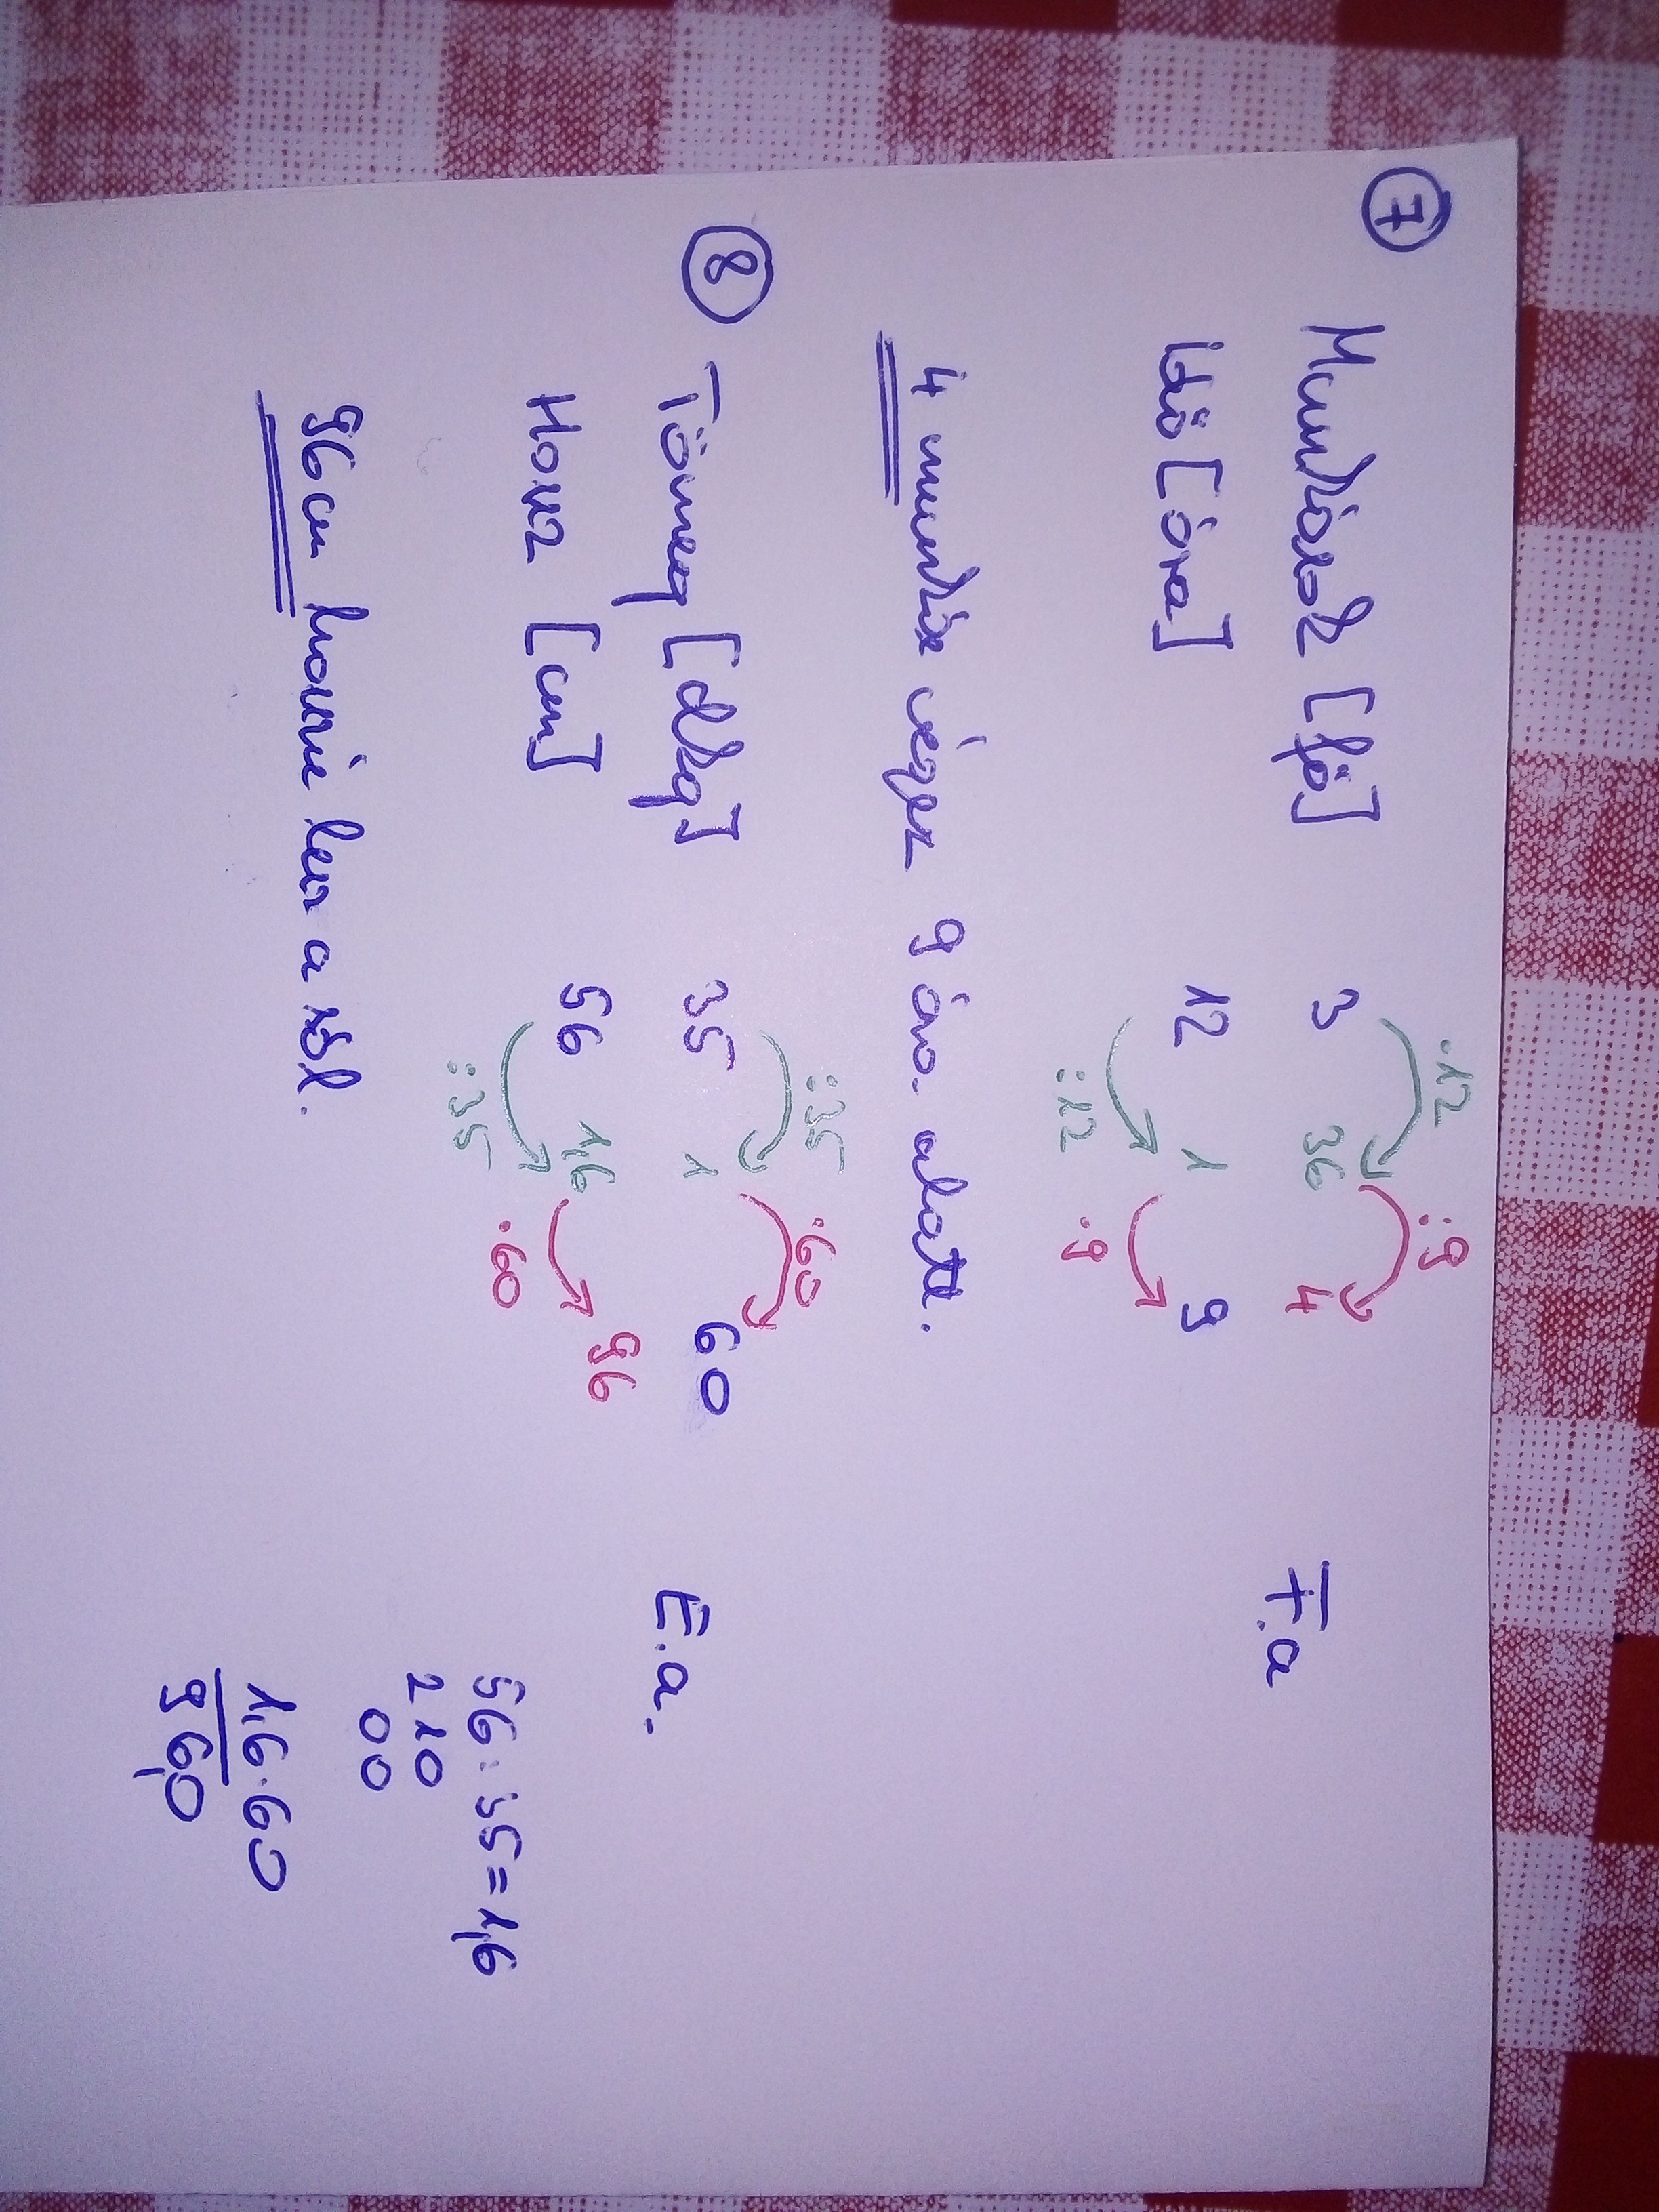 ⑦
·12 :9
Munkások [fő] 3 36 4 F.a
Idő [óra] 12 1 9
:12 ·9
4 munkás végez 9 óra alatt.
⑧
:35 ·60
Tömeg [dkg] 35 1 60 E.a.
Hossz [cm] 56 1,6 96
:35 ·60
56:35=1,6
210
00
96 cm hosszú lesz a sál.
1,6·60
96,0